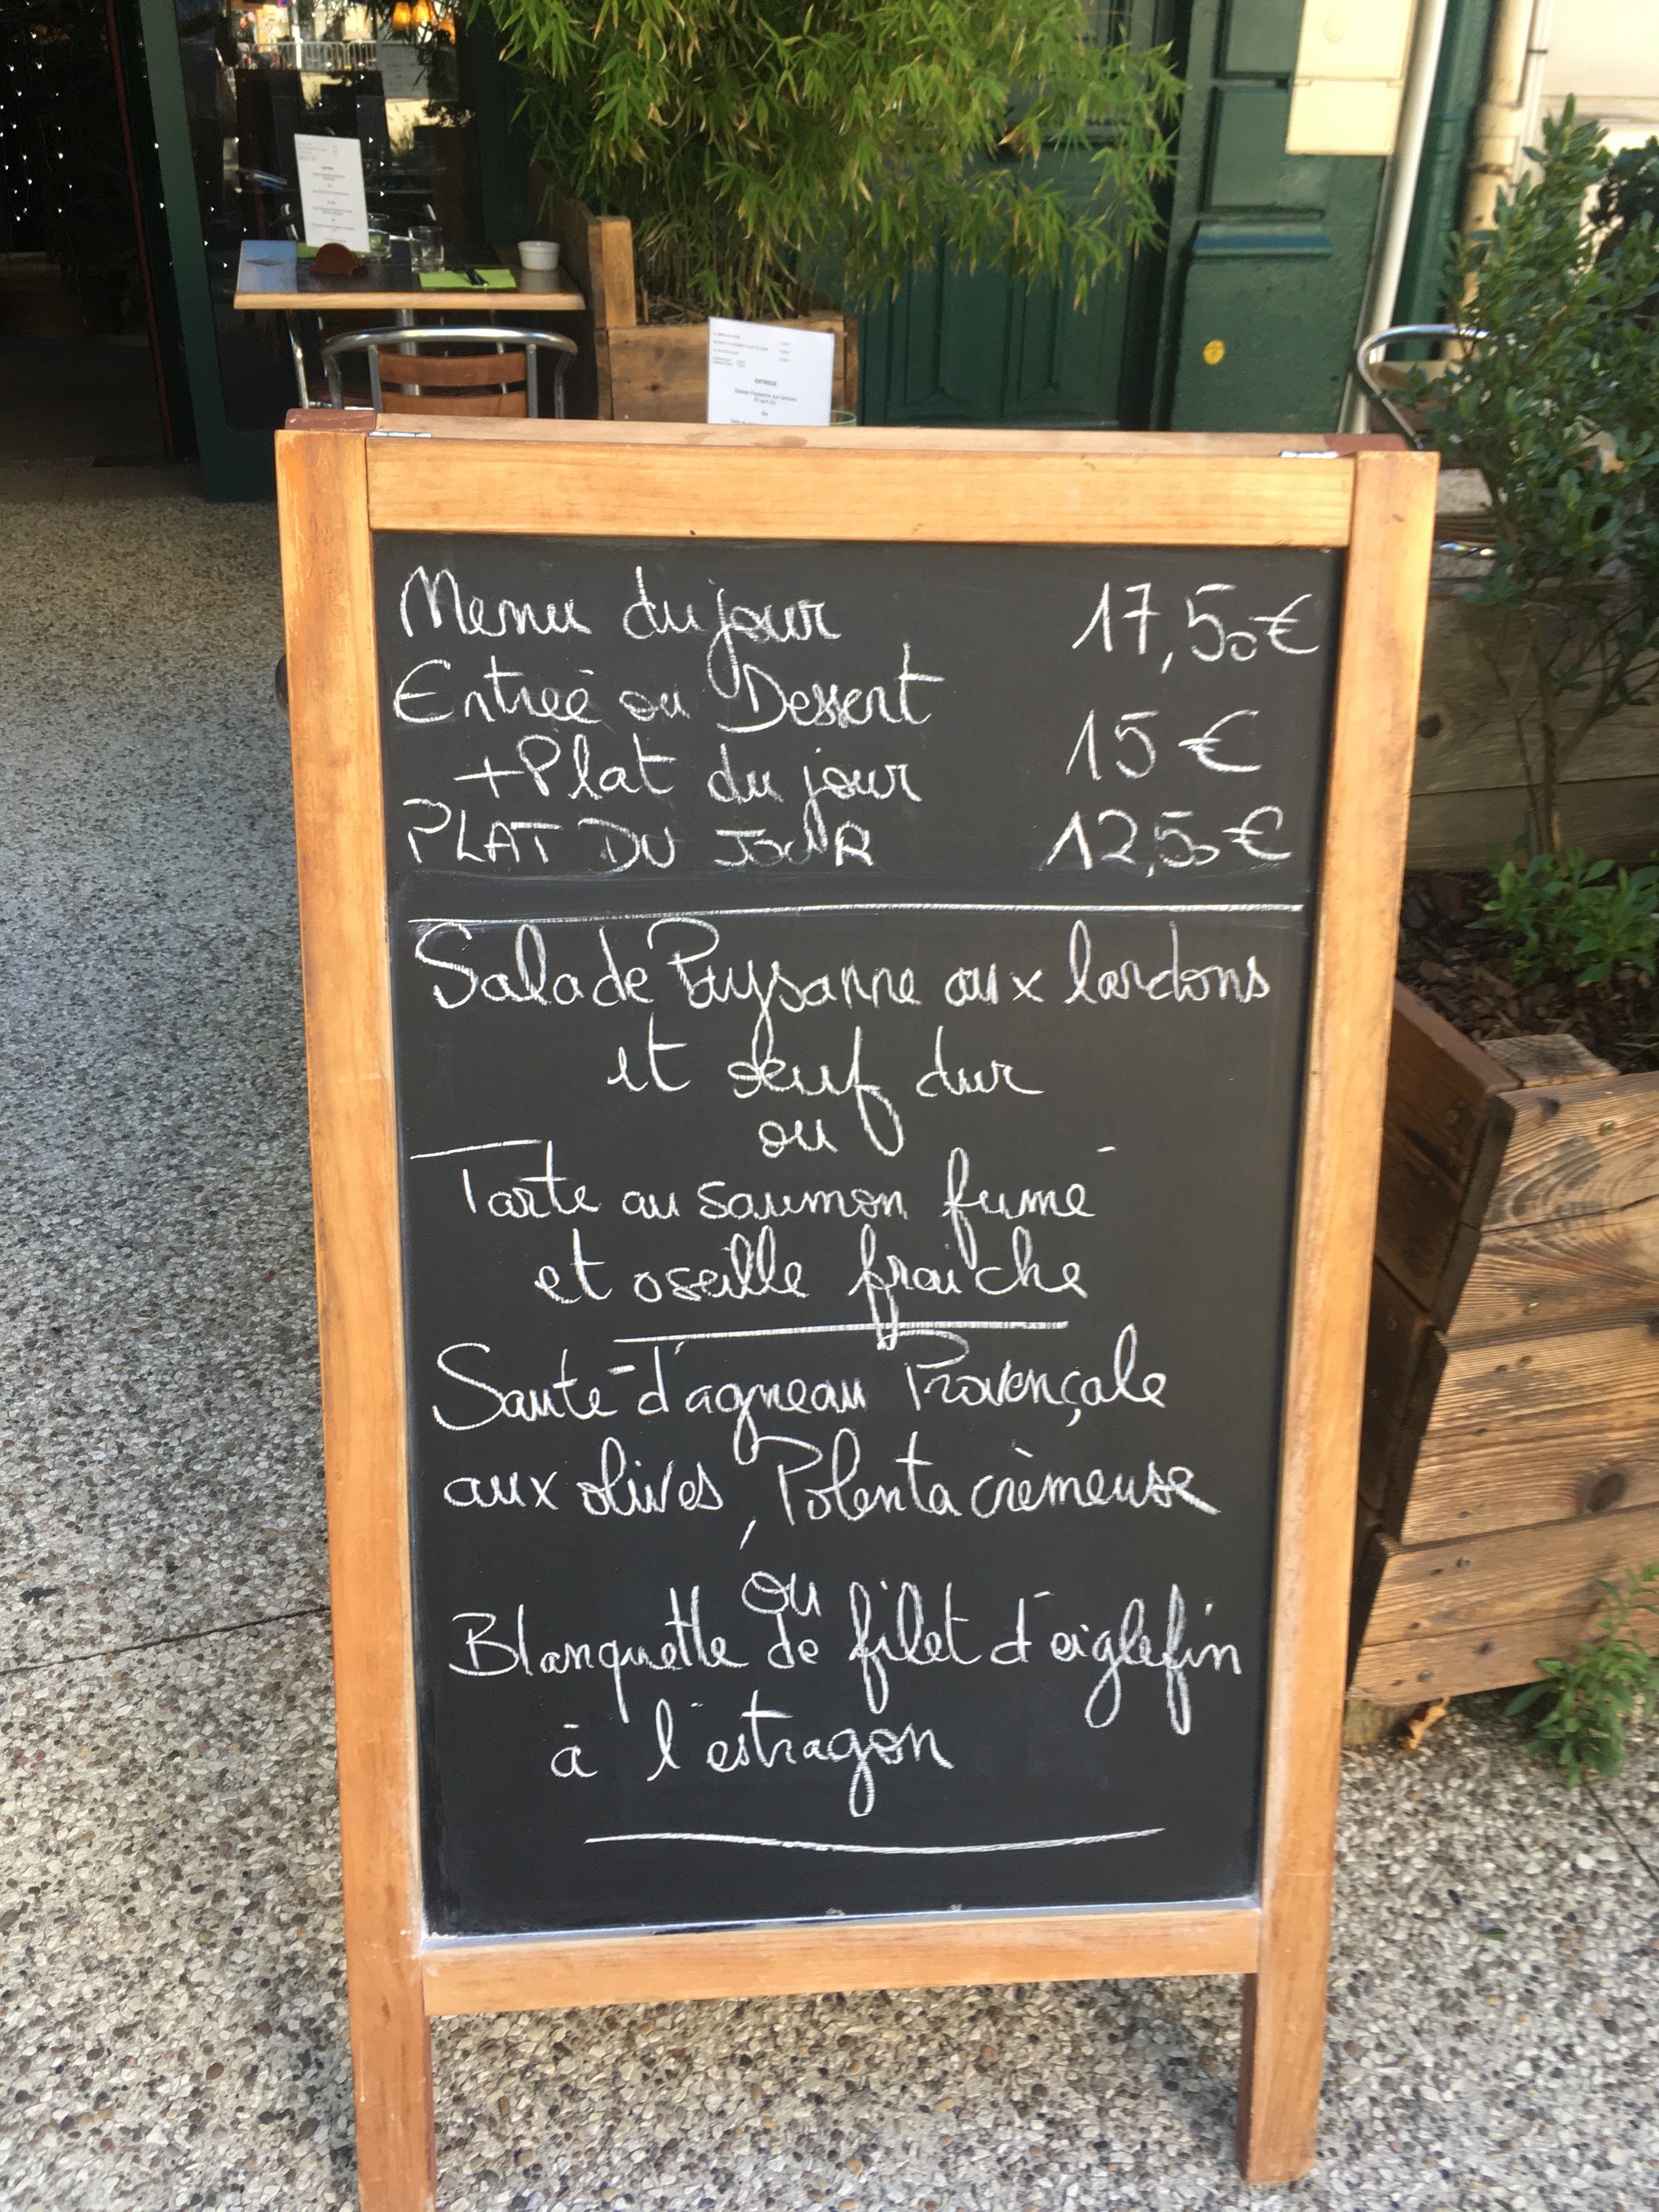 Menu du jour 17,50€
Entreé ou Dessert
+Plat du jour 15€
PLAT DU JOUR 12,50€
Salade Paysanne aux lardons
et oeuf dur
ou
Tarte au saumon fumé
et oseille fraiche
Sauté d'agneau Provençale
aux olives, Polenta crèmeuse
ou
Blanquette de filet d'eiglefin
à l'estragon
ENTREES